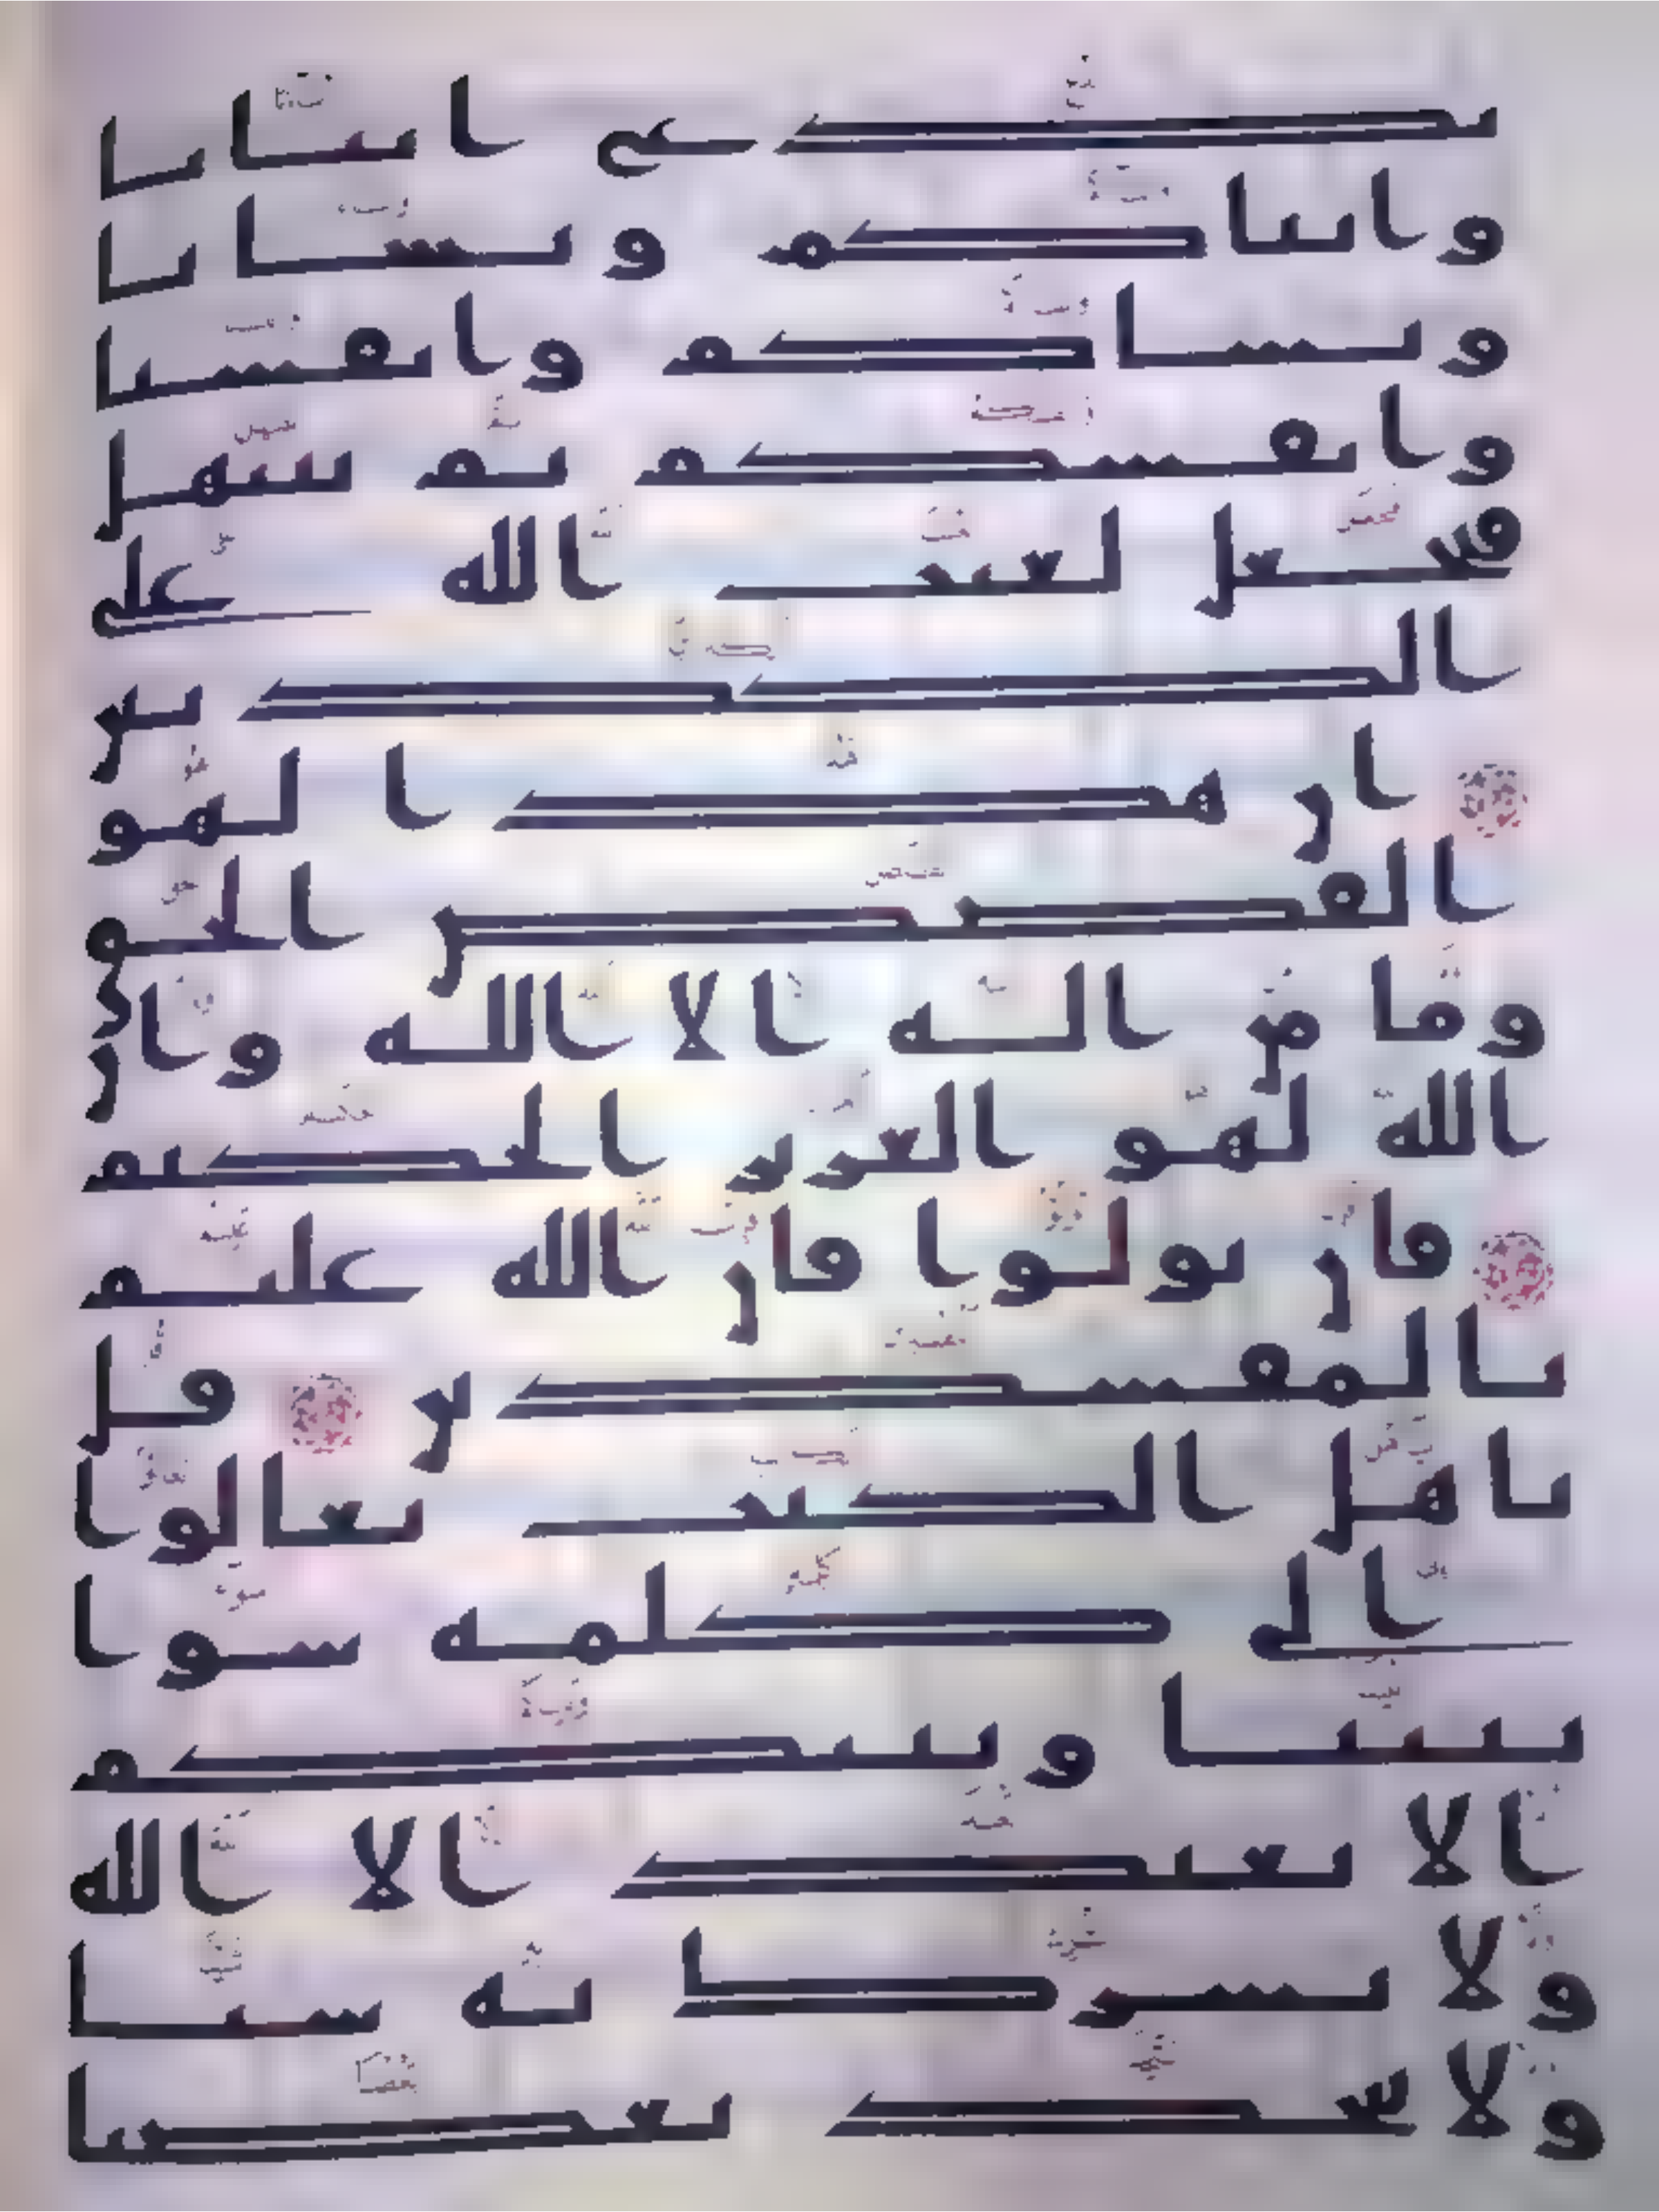 ندع ابنانا
وابناكم ونسانا
ونساكم وانفسنا
وانفسكم ثم نبتهل
فنجعل لعنت الله على
الكذبين
ان هذا لهو
القصص الحق
وما من اله الا الله وان
الله لهو العزيز الحكيم
فان تولوا فان الله عليم
بالمفسدين قل
ياهل الكتب تعالوا
الى كلمة سوا
بيننا وبينكم
الا نعبد الا الله
ولا نشرك به شيا
ولا يتخذ بعضنا